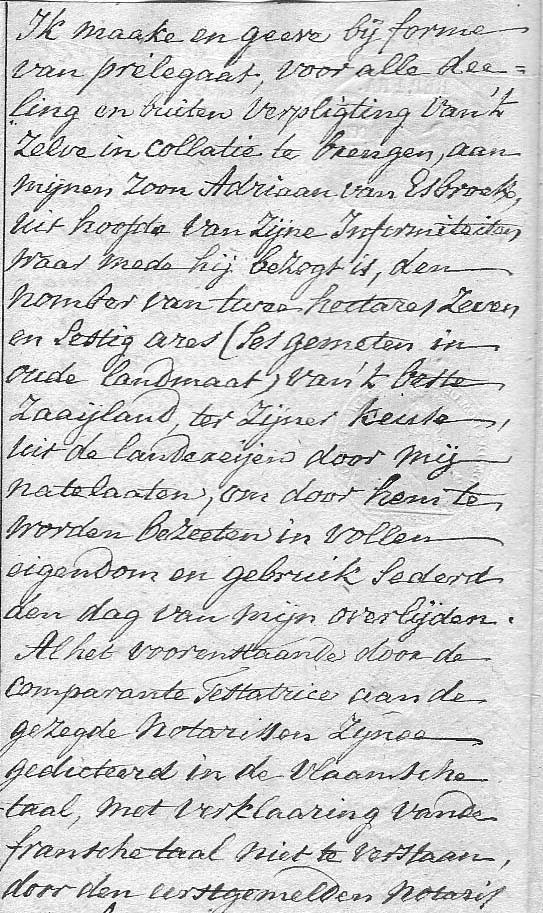 Ik maake en geeve bij forme
van prélegaat, voor alle dee=
ling en buiten verpligting van't
zelve in collatie te brengen, aan
mijnen zoon Adriaan van Esbroek,
uit hoofde van zijne Infirmiteiten
waar mede hij bezogt is, den
nomber van twee hectares zeven
en sestig ares (ses gemeten in
oude landmaat) van't beste
zaaijland, ter zijner keuse,
uit de landereijen door mij
natelaaten, om door hem te
worden bezeeten in vollen
eigendom en gebruik sederd
den dag van mijn overlijden.
Al het voorenstaande door de
comparante Testatrice aan de
gezegde Notarissen zijnde
gedicteerd in de vlaamsche
taal, met verklaaring vande
fransche taal niet te verstaan,
door den eerstgemelden Notaris